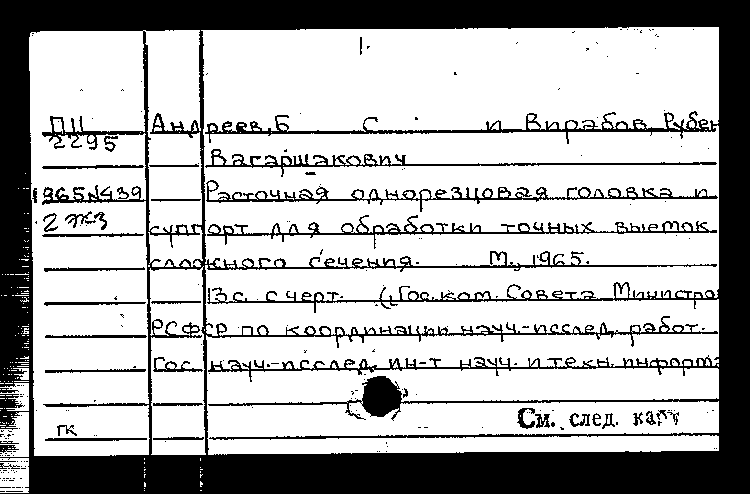 1.
П11 Андреев, Б С. и Вирабов, Рубен
2295
Вагаршакович
1965№439 Расточная однорезцовая головка и
2 экз суппорт для обработки точных выемок
сложного сечения. М., 1965.
13 с. с черт. (Гос. ком. Совета Министров
РСФСР по координации науч.-исслед. работ.
Гос. науч.-исслед. ин-т науч. и техн. информа
См. след. карт
гк